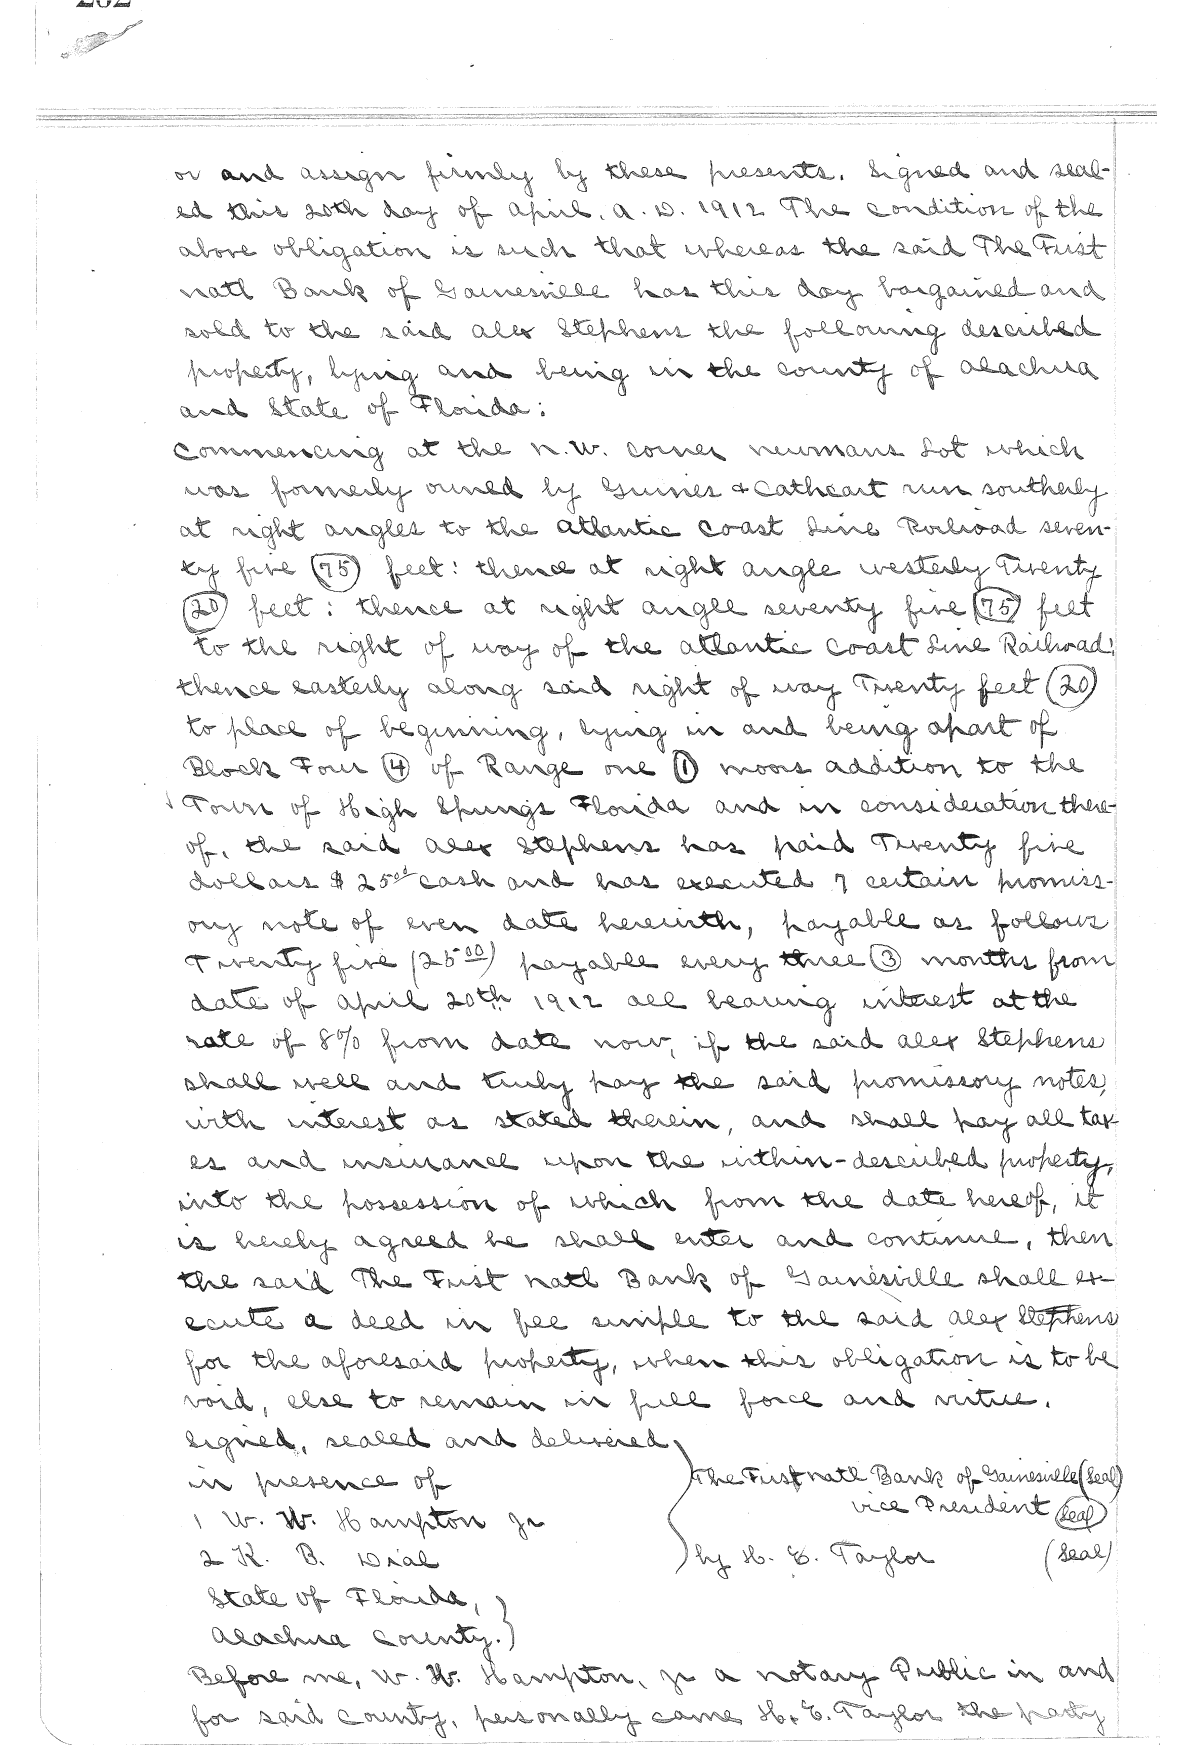 or and assign firmly by these presents. Signed and seal-
ed this 20th day of April. A. D. 1912 The condition of the
above obligation is such that whereas the said The First
Natl Bank of Gainesville has this day bargained and
sold to the said Alex Stephens the following described
property, lying and being in the county of Alachua
and State of Florida:
Commencing at the N.W. corner Newmans Lot which
was formerly owned by & Cathcart run southerly
at right angles to the Atlantic Coast Line Railroad seven-
ty five (75) feet: thence at right angle westerly Twenty
(20) feet: thence at right angle seventy five (75) feet
to the right of way of the Atlantic Coast Line Railroad:
thence easterly along said right of way Twenty feet (20)
to place of beginning, lying in and being apart of
Block Four (4) of Range one (1) Moors addition to the
Town of High Springs Florida and in consideration there-
of, the said Alex Stephens has paid Twenty five
dollars $25.00 cash and has executed 7 certain promiss-
ory note of even date herewith, payable as follows
Twenty five (25.00) payable every three (3) months from
date of April 20th 1912 all bearing interest at the
rate of 8% from date now, if the said Alex Stephens
shall well and truly pay the said promissory notes,
with interest as stated therein, and shall pay all tax-
es and insurance upon the within-described property,
into the possession of which from the date hereof, it
is hereby agreed he shall enter and continue, then
the said The First Natl Bank of Gainesville shall ex-
ecute a deed in fee simple to the said Alex Stephens
for the aforesaid property, when this obligation is to be
void, else to remain in full force and virtue.
Signed, sealed and delivered
in presence of
The First Natl Bank of Gainesville (Seal)
vice President (Seal)
1 W. W. Hampton Jr
2 K. B. Dial
by H. E. Taylor (Seal)
State of Florida,
Alachua County.
Before me, W. W. Hampton, Jr a Notary Public in and
for said County, personally came H. E. Taylor the party